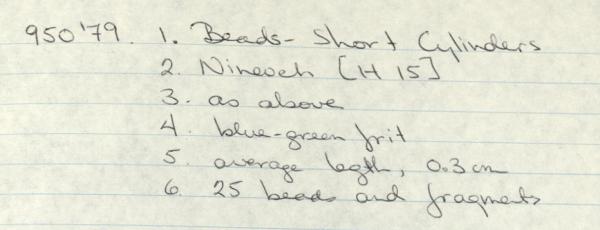 950'79. 1. Beads- Short Cylinders
2. Nineveh [H 15]
3. as above
4. blue-green frit
5. average legth, 0.3 cm
6. 25 beads and fragments